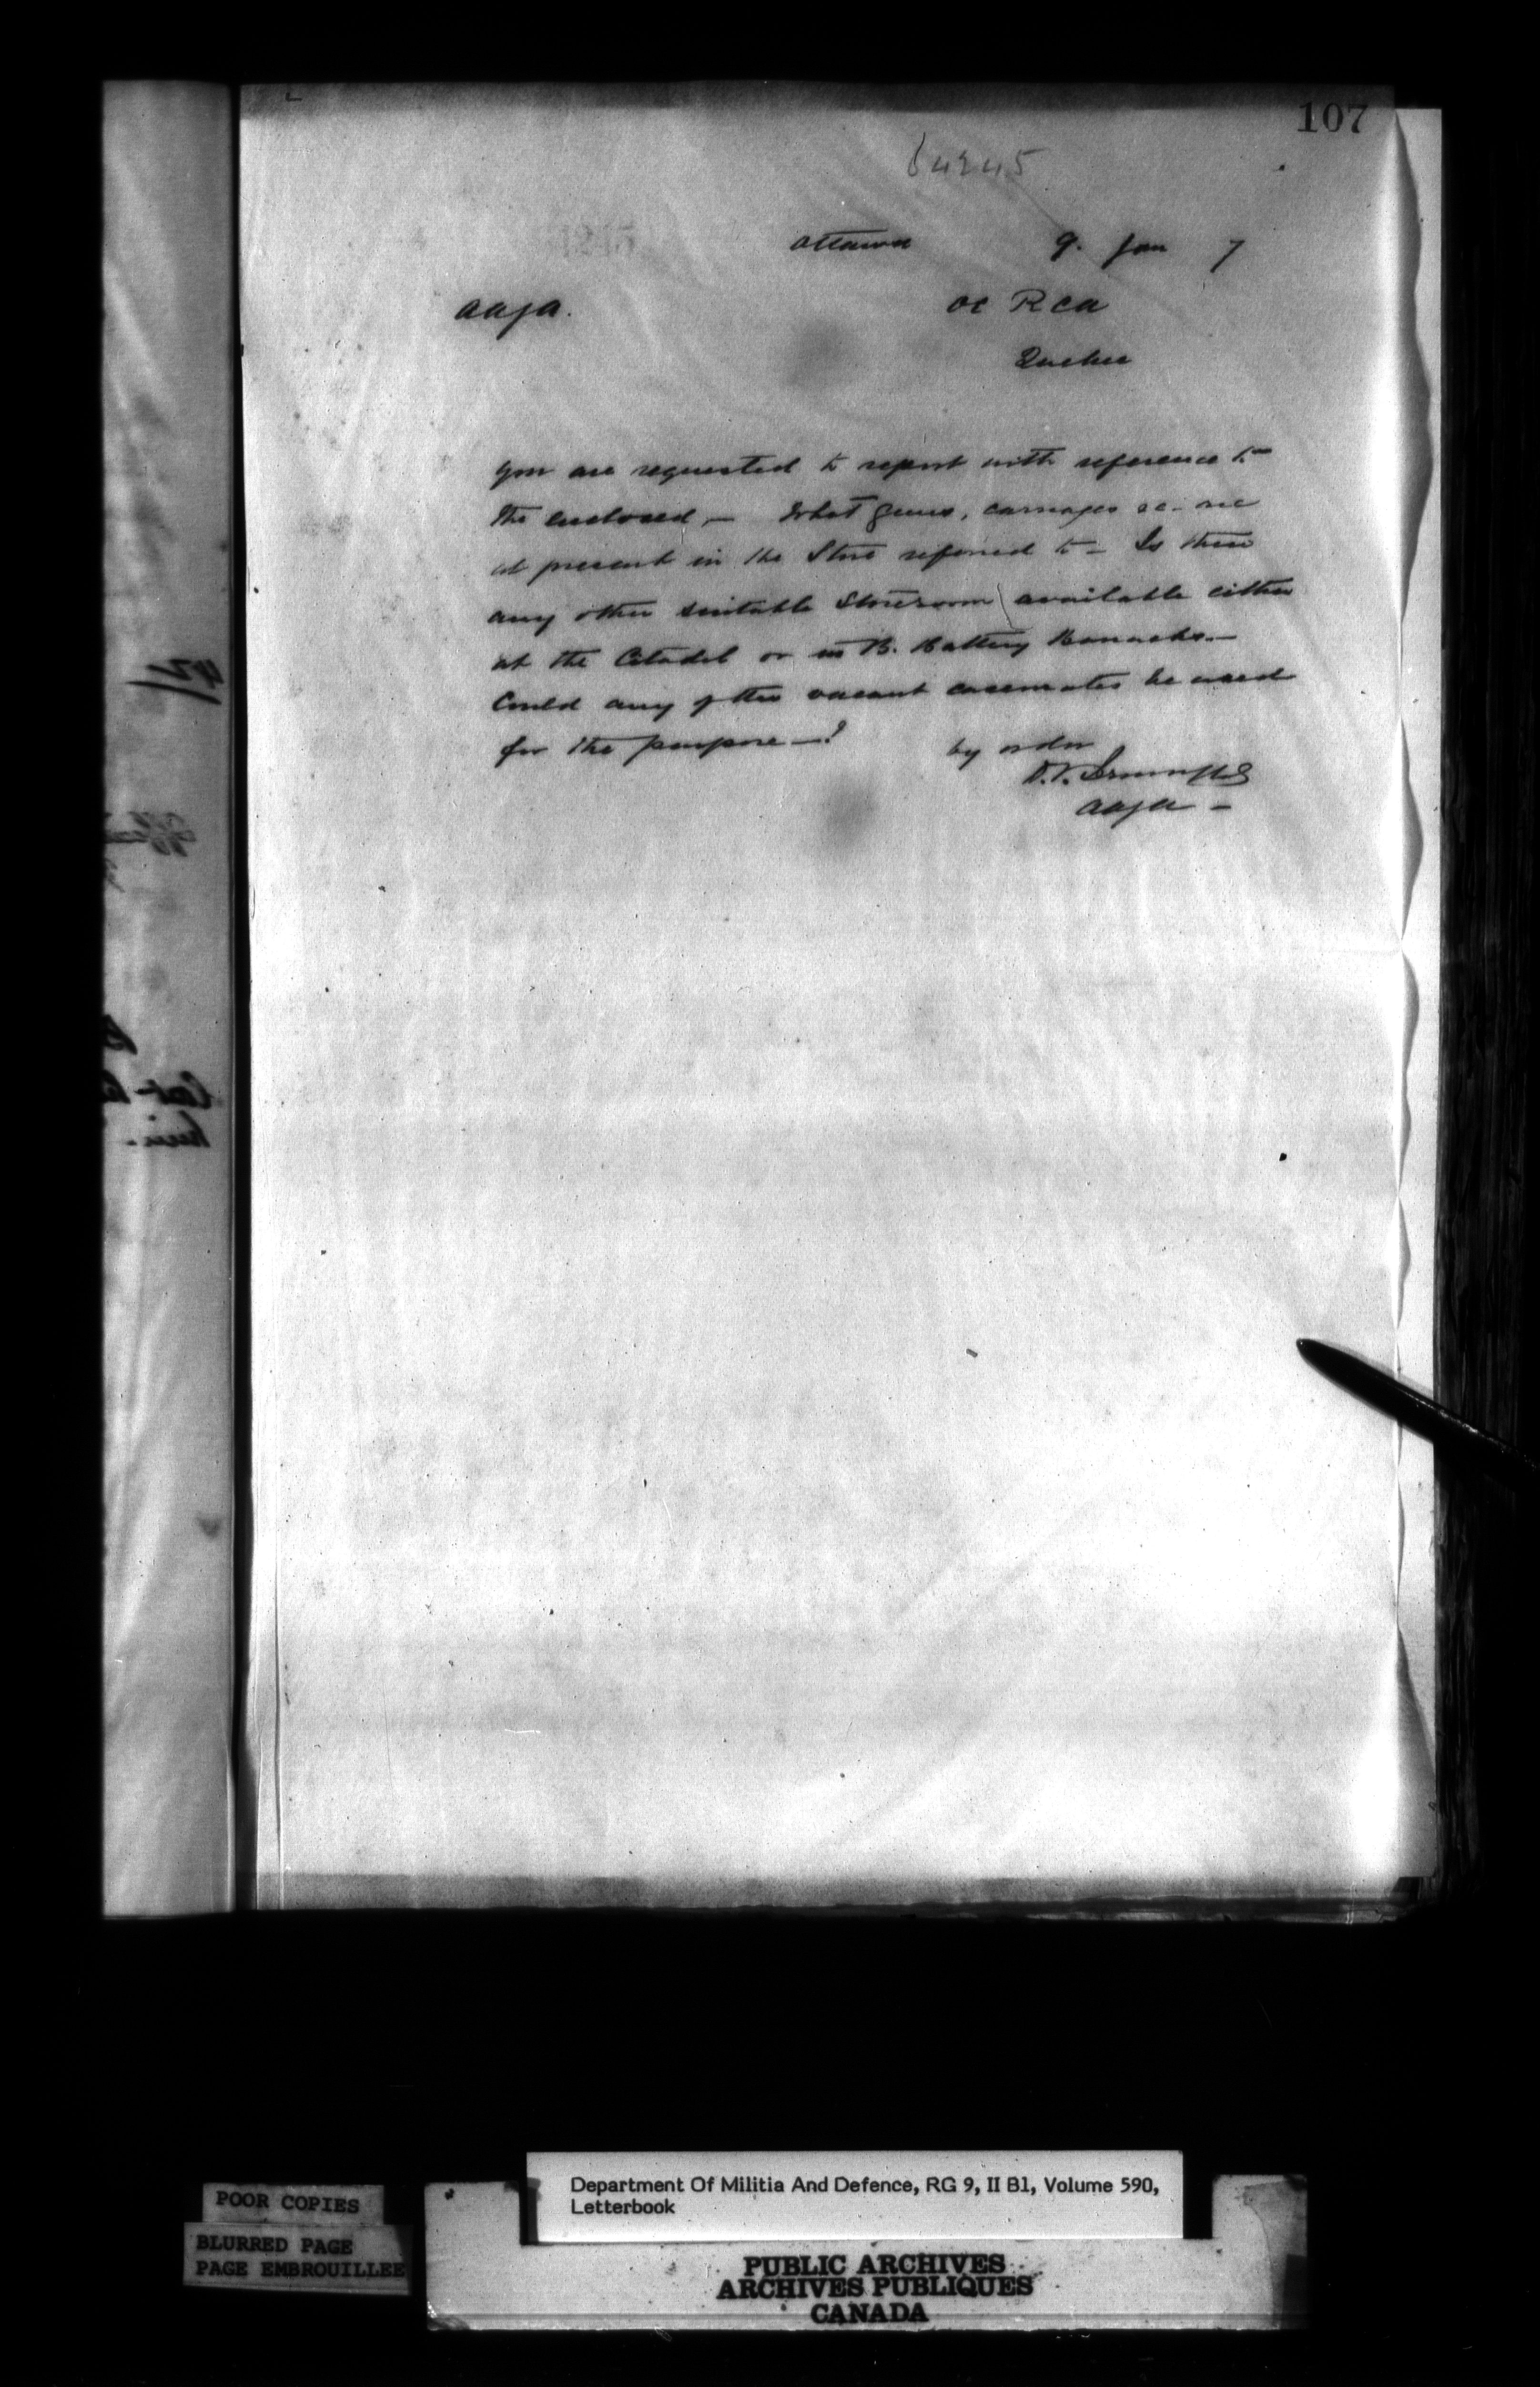 107
64245
Ottawa 9. Jan 7
AAGA.
OC RCA
Quebec
You are requested to report with reference to
the enclosed,— What guns, carriages &c. are
at present in the Store referred to — Is there
any other suitable Storeroom available either
at the Citadel or in B. Battery Barracks.—
Could any of the vacant casemates be used
for the purpose —?
by order
AAGA —
POOR COPIES
BLURRED PAGE
PAGE EMBROUILLEE
Department Of Militia And Defence, RG 9, II B1, Volume 590,
Letterbook
PUBLIC ARCHIVES
ARCHIVES PUBLIQUES
CANADA